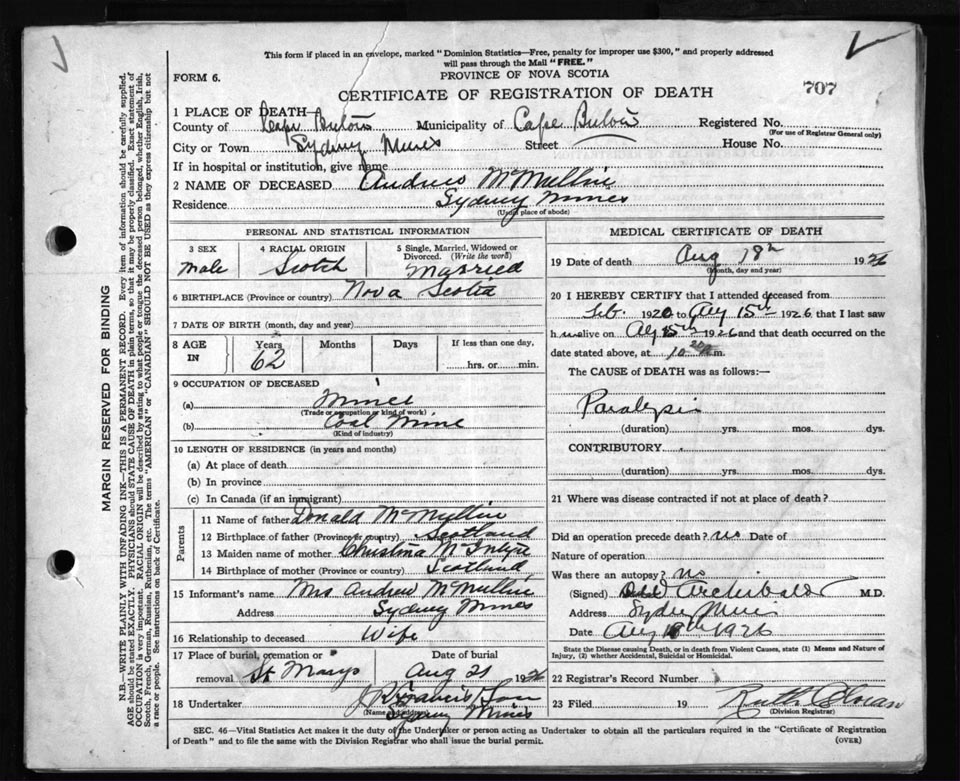 This form if placed in an envelope, marked "Dominion Statistics—Free, penalty for improper use $300," and properly addressed
will pass through the Mail "FREE."
FORM 6.
PROVINCE OF NOVA SCOTIA
707
CERTIFICATE OF REGISTRATION OF DEATH
1 PLACE OF DEATH
County of Cape Breton Municipality of Cape Breton Registered No.
(For use of Registrar General only)
City or Town Sydney Mines Street House No.
If in hospital or institution, give name
2 NAME OF DECEASED Andrew McMullin
Residence Sydney Mines
(Usual place of abode)
PERSONAL AND STATISTICAL INFORMATION
3 SEX 4 RACIAL ORIGIN 5 Single, Married, Widowed or
Divorced. (Write the word)
Male Scotch Married
6 BIRTHPLACE (Province or country) Nova Scotia
7 DATE OF BIRTH (month, day and year)
8 AGE IN Years Months Days If less than one day,
62 hrs. or min.
9 OCCUPATION OF DECEASED
(a) Miner
(Trade or occupation or kind of work)
(b) Coal Mine
(Kind of industry)
10 LENGTH OF RESIDENCE (in years and months)
(a) At place of death
(b) In province
(c) In Canada (if an immigrant)
Parents
11 Name of father Donald McMullin
12 Birthplace of father (Province or country) Scotland
13 Maiden name of mother Christina McIntyre
14 Birthplace of mother (Province or country) Scotland
15 Informant's name Mrs Andrew McMullin
Address Sydney Mines
16 Relationship to deceased Wife
17 Place of burial, cremation or removal Date of burial
St Marys Aug 21 1926
18 Undertaker
Sydney Mines
MEDICAL CERTIFICATE OF DEATH
19 Date of death Aug 18th 1926
(Month, day and year)
20 I HEREBY CERTIFY that I attended deceased from
Feb. 1920 to Aug 15th 1926, that I last saw
him alive on Aug 15th 1926 and that death occurred on
date stated above, at 10 m.
The CAUSE of DEATH was as follows:—
Paralysis
(duration) yrs. mos. dys.
CONTRIBUTORY
(duration) yrs. mos. dys.
21 Where was disease contracted if not at place of death?
Did an operation precede death? no Date of
Nature of operation
Was there an autopsy? no
(Signed) Archibald M.D.
Address Sydney Mines
Date Aug 1926
State the Disease causing Death, or in death from Violent Causes, state (1) Means and Nature of
Injury, (2) whether Accidental, Suicidal or Homicidal.
22 Registrar's Record Number
23 Filed 19 Ruth
(Division Registrar)
SEC. 46—Vital Statistics Act makes it the duty of the Undertaker or person acting as Undertaker to obtain all the particulars required in the "Certificate of Registration
of Death" and to file the same with the Division Registrar who shall issue the burial permit.
(OVER)
MARGIN RESERVED FOR BINDING
N.B.—WRITE PLAINLY WITH UNFADING INK—THIS IS A PERMANENT RECORD. Every item of information should be carefully supplied.
AGE should be stated EXACTLY. PHYSICIANS should STATE CAUSE OF DEATH in plain terms, so that it may be properly classified. Exact statement of
OCCUPATION is very important. RACIAL ORIGIN will be described by stating to what people or tongue the deceased person belonged, whether English, Irish,
Scotch, French, German, Russian, Ruthenian, etc. The terms "AMERICAN" or "CANADIAN" SHOULD NOT BE USED as they express citizenship but not
a race or people. See instructions on back of Certificate.